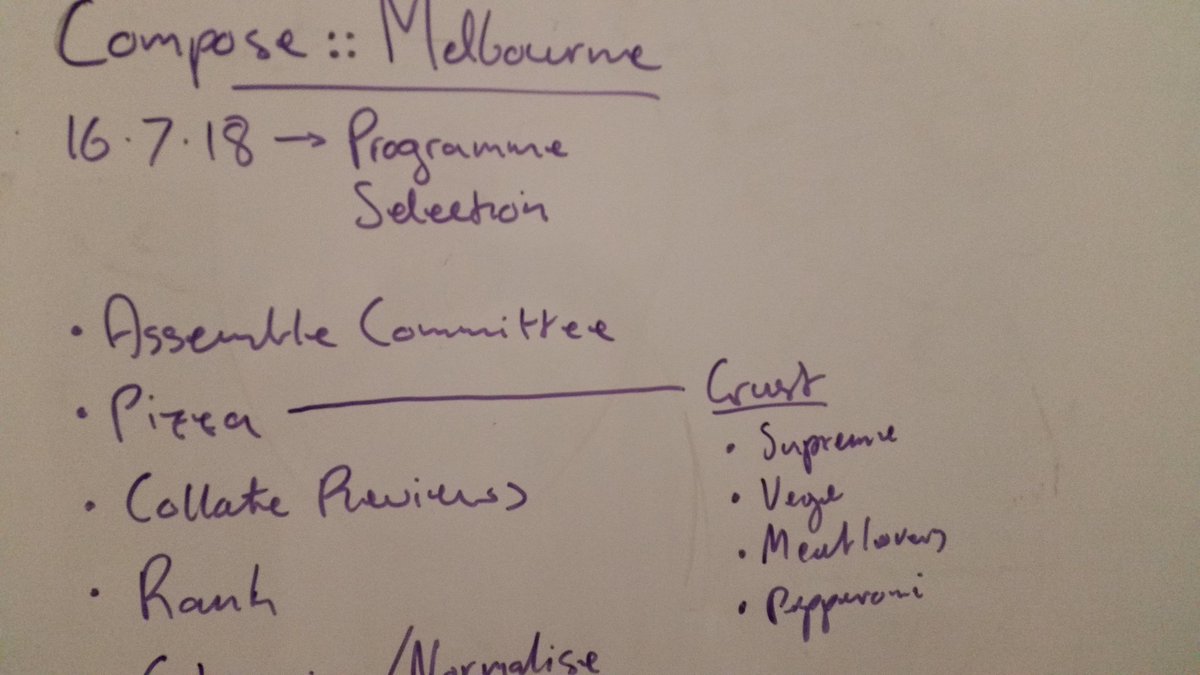 Compose :: Melbourne
16.7.18 → Programme
Selection
• Assemble Committee
• Pizza
Crust
• Supreme
• Vege
• Meatlovers
• Pepperoni
• Collate Reviews
• Rank
/Normalise